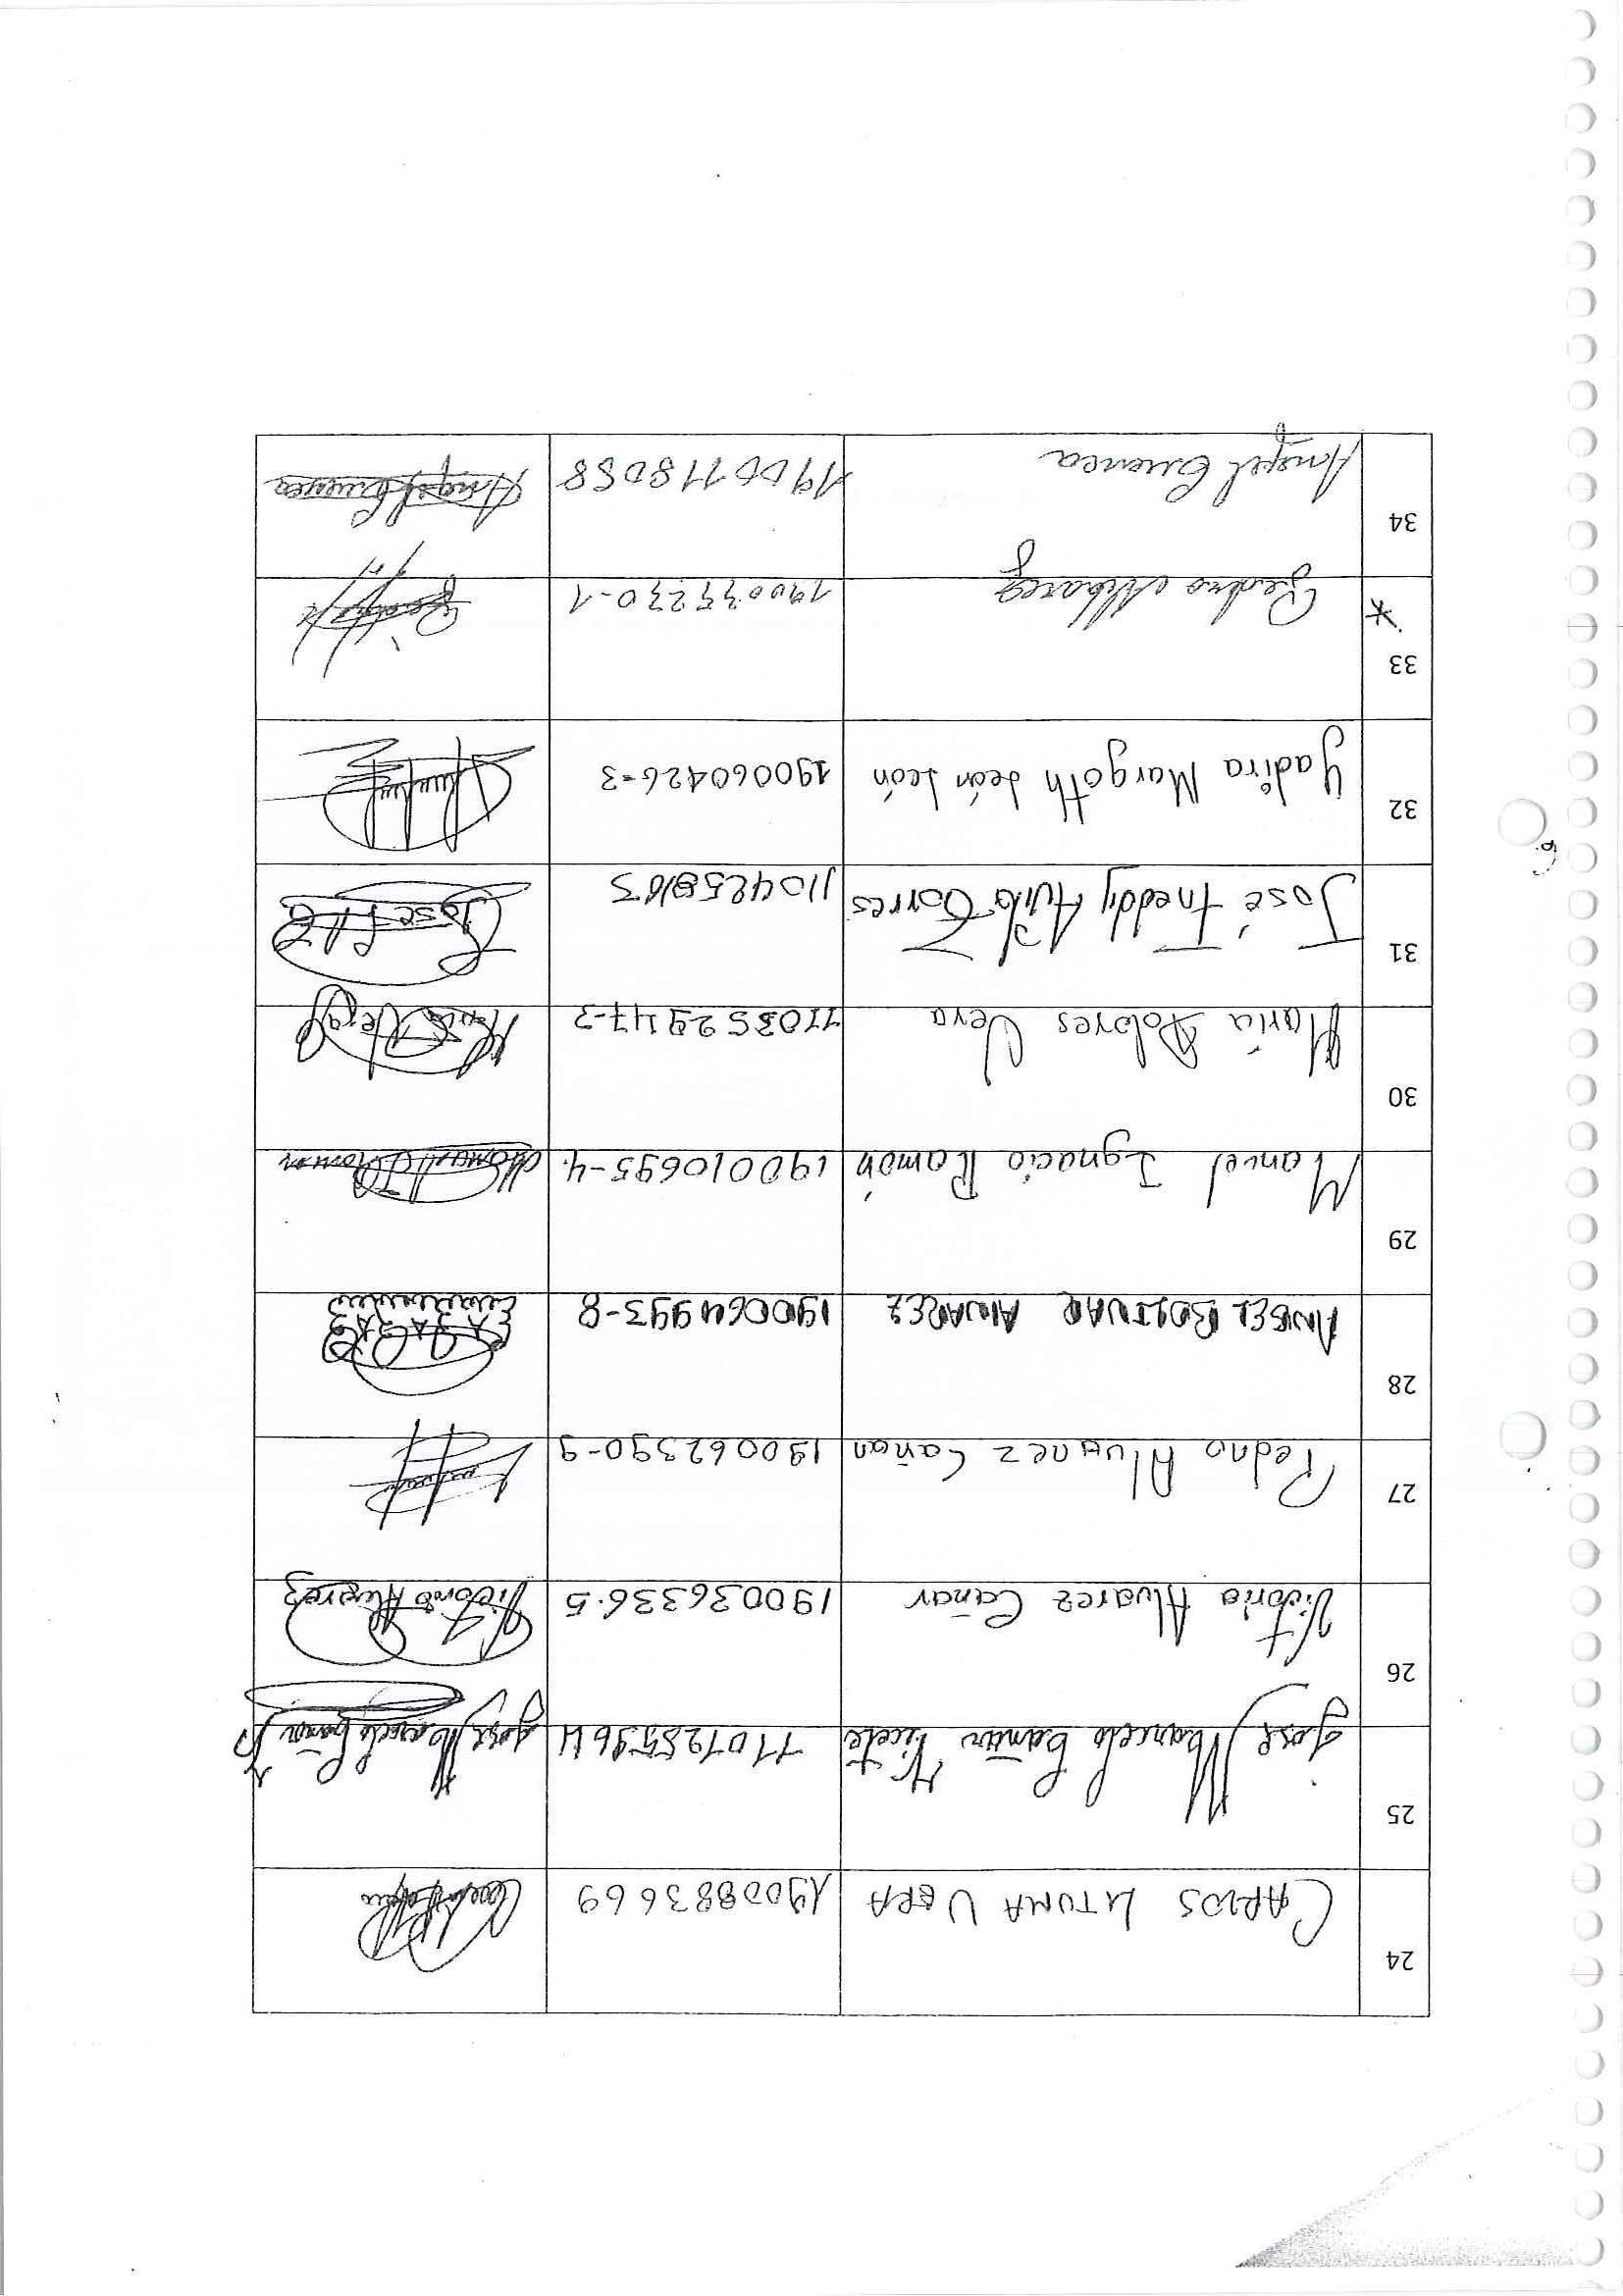 24 CARLOS LITUMA VERA 1900883669
25 Jose Marcelo Cañar Vicete 1101285596 4 Jose Marcelo Cañar
26 Victoria Alvarez Cañar 190036336-5 Victoria Alvarez
27 Pedro Alvarez Cañar 190062390-9
28 ANGEL BOLIVAR ALVAREZ 190064993-8
29 Manuel Ignacio Ramón 190010695-4
30 María Dolores Vera 110352947-3 María Vera
31 José Freddy Avila Torres 1104258163 José F A T
32 Yadira Margoth León León 190060426-3
33 * Pedro Albarez 190037230-1
34 Angel Cuenca 1900118058 Angel Cuenca